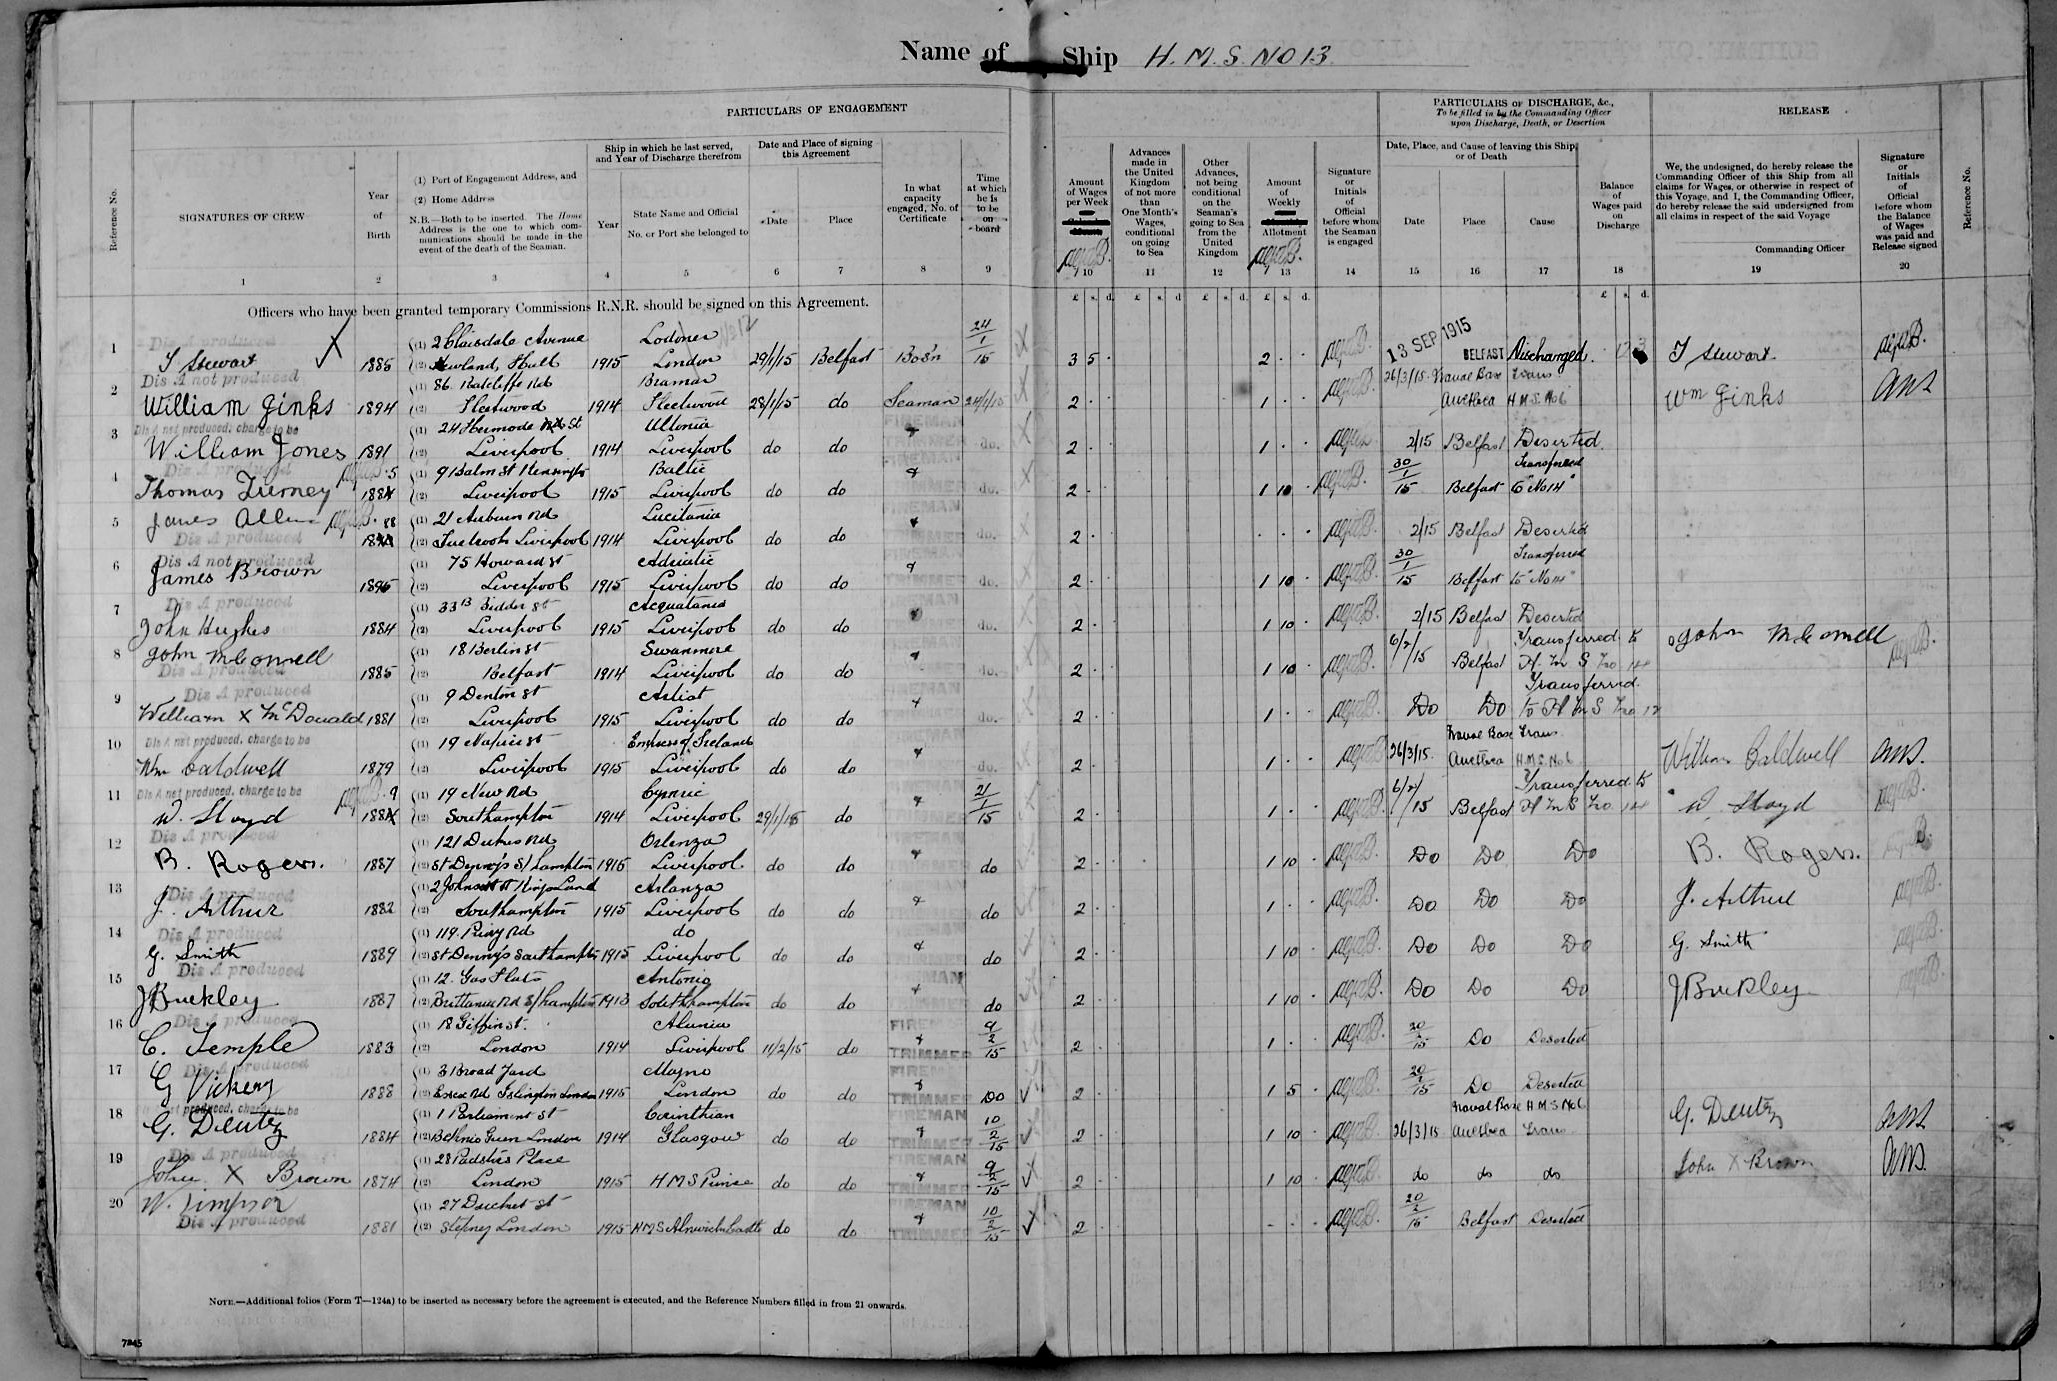 Name of Ship H.M.S. NO 13.
PARTICULARS OF ENGAGEMENT
PARTICULARS OF DISCHARGE, &c.,
To be filled in by the Commanding Officer
upon Discharge, Death, or Desertion
RELEASE
Reference No.
SIGNATURES OF CREW
Year
of
Birth
(1) Port of Engagement Address, and
(2) Home Address
N.B.—Both to be inserted. The Home
Address is the one to which com-
munications should be made in the
event of the death of the Seaman.
Ship in which he last served,
and Year of Discharge therefrom
Year
State Name and Official
No. or Port she belonged to
Date and Place of signing
this Agreement
Date
Place
In what
capacity
engaged, No. of
Certificate
Time
at which
he is
to be
on
board
Amount
of Wages
per Week
Advances
made in
the United
Kingdom
of not more
than
One Month's
Wages,
conditional
on going
to Sea
Other
Advances,
not being
conditional
on the
Seaman's
going to Sea
from the
United
Kingdom
Amount
of
Weekly
Allotment
Signature
or
Initials
of
Official
before whom
the Seaman
is engaged
Date, Place, and Cause of leaving this Ship,
or of Death
Date
Place
Cause
Balance
of
Wages paid
on
Discharge
We, the undesigned, do hereby release the
Commanding Officer of this Ship from all
claims for Wages, or otherwise in respect of
this Voyage, and I, the Commanding Officer,
do hereby release the said undersigned from
all claims in respect of the said Voyage
Commanding Officer
Signature
or
Initials
of
Official
before whom
the Balance
of Wages
was paid and
Release signed
Reference No.
1 2 3 4 5 6 7 8 9 10 11 12 13 14 15 16 17 18 19 20
£ s. d. £ s. d £ s. d. £ s. d. £ s. d.
Officers who have been granted temporary Commissions R.N.R. should be signed on this Agreement.
Dis A produced (1) 2 Avenue 24/1
1 T Stewart 1885 (2) Newland Hull 1915 London 29/1/15 Belfast Bos'n 15 3 5 2 13 SEP 1915 BELFAST Discharged. T Stewart.
Dis A not produced (1) 86 Ratcliffe Rd Bramar 26/3/15 Naval Base Trans
2 William Jinks 1894 (2) Fleetwood 1914 Fleetwood 28/1/15 do Seaman 24/1/15 2 1 H.M.S. No 6 Wm Jinks
Dis A not produced, charge to be (1) 24 St Ultonia FIREMAN
3 William Jones 1891 (2) Liverpool 1914 Liverpool do do TRIMMER do. 2 1 2/15 Belfast Deserted
Dis A produced (1) 9 Balm St Kensington Baltic FIREMAN 30/1 Transferred
4 Thomas 1884 (2) Liverpool 1915 Liverpool do do do. 2 1 10 15 Belfast to "No 14"
5 James Allen 88 (1) 21 Auburn Rd Lucitania FIREMAN
Dis A produced (2) Tuebrook Liverpool 1914 Liverpool do do TRIMMER do. 2 2/15 Belfast Deserted
Dis A not produced (1) 75 Howard St Adriatic FIREMAN 30/1 Transferred
6 James Brown 1896 (2) Liverpool 1915 Liverpool do do TRIMMER do. 2 1 10 15 Belfast to "No 14"
Dis A produced (1) 33B Bidder St Acquatania
7 John Hughes 1884 (2) Liverpool 1915 Liverpool do do do. 2 1 10 2/15 Belfast Deserted
8 John McConnell (1) 18 Berlin St Swanmore 6/2 Transferred to John McConnell
Dis A produced 1885 (2) Belfast 1914 Liverpool do do do. 2 1 10 /15 Belfast H.M.S No 14
Dis A produced (1) 9 Denton St Artist Transferred
9 William X McDonald 1881 (2) Liverpool 1915 Liverpool do do do. 2 1 Do Do to H M S No
Dis A not produced, charge to be (1) 19 Napier St Empress of Ireland Naval Base Trans
10 Wm Caldwell 1879 (2) Liverpool 1915 Liverpool do do do. 2 1 26/3/15. H.M.S. No 6 William Caldwell
Dis A not produced, charge to be 9 (1) 19 New Rd Cymric 21/1 6/2 Transferred to
11 W. Lloyd 188 (2) Southampton 1914 Liverpool 29/1/15 do 15 2 1 /15 Belfast H M S No 14 W. Lloyd
Dis A produced (1) 121 Dukes Rd
12 B. Rogers. 1887 (2) St Denny's S/hampton 1915 Liverpool do do do 2 1 10 Do Do Do B. Rogers.
Dis A produced (1) 2 Johnson St Kings Land Arlanza
13 J. Arthur 1882 (2) Southampton 1915 Liverpool do do do 2 1 Do Do Do J. Arthur
Dis A produced (1) 119. Priory Rd do
14 G. Smith 1889 (2) St Denny's Southampton 1915 Liverpool do do do 2 1 10 Do Do Do G. Smith
Dis A produced (1) 12. Gas Flats Antonia
15 J Buckley 1887 (2) Brittania Rd S/hampton 1913 Southampton do do do 2 1 10 Do Do Do J Buckley
Dis A produced (1) 18 Giffin St. FIREMAN 9/2 20/2
16 C. Temple 1883 (2) London 1914 Liverpool 11/2/15 do TRIMMER 15 2 1 15 Do Deserted
Dis A produced (1) 3 Broad Yard FIREMAN 20/2
17 G Vickery 1888 (2) Essex Rd Islington London 1915 London do do TRIMMER Do 2 1 5 15 Do Deserted
not produced, charge to be (1) 1 Parliament St Corinthian FIREMAN 10/2 Naval Base H.M.S No 6
18 G. Deutz 1884 (2) Bethnal Green London 1914 Glasgow do do TRIMMER 15 2 1 10 26/3/15 Trans G. Deutz
Dis A produced (1) 28 Place FIREMAN 9/2
19 John X Brown 1874 (2) London 1915 HMS Prince do do TRIMMER 15 2 1 10 do do do John X Brown
20 W. Simpson (1) 27 Duckett St FIREMAN 10/2 20/2
Dis A produced 1881 (2) Stepney London 1915 HMS Alnwick Castle do do TRIMMER 15 2 15 Belfast Deserted
NOTE.—Additional folios (Form T—124a) to be inserted as necessary before the agreement is executed, and the Reference Numbers filled in from 21 onwards.
7245